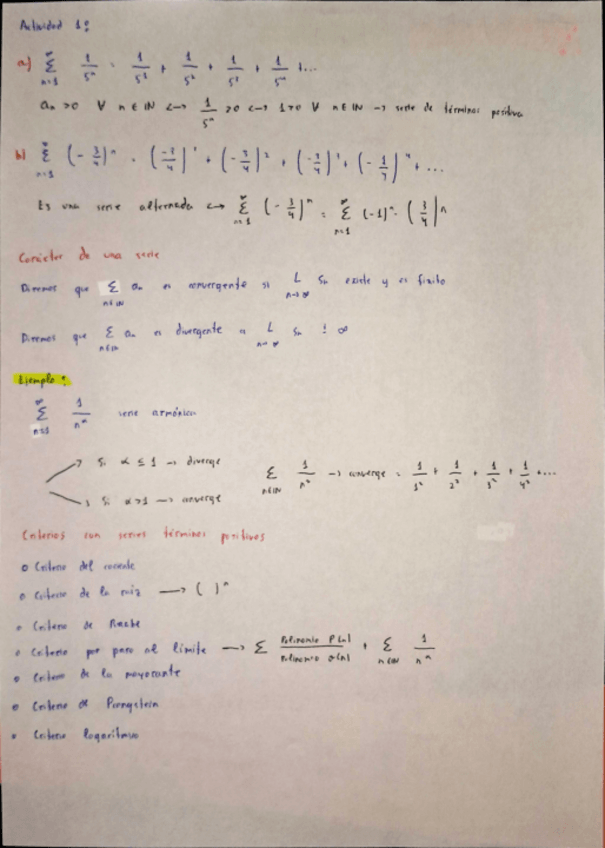 Actividad 1:
a) ∞ Σ n=1 1/5ⁿ = 1/5¹ + 1/5² + 1/5³ + 1/5ⁿ + ...
aₙ >0 ∀ n ∈ IN <-> 1/5ⁿ >0 <-> 1>0 ∀ n ∈ IN -> serie de términos positiva
b) ∞ Σ n=1 (-3/4)ⁿ = (-3/4)¹ + (-3/4)² + (-3/4)³ + ...
Es una serie alternada <-> ∞ Σ n=1 (-3/4)ⁿ = ∞ Σ n=1 (-1)ⁿ · (3/4)ⁿ
Carácter de una serie
Diremos que Σ n∈IN aₙ es convergente si L n->∞ Sn existe y es finito
Diremos que Σ n∈IN aₙ es divergente si L n->∞ Sn ∞
Ejemplo:
∞ Σ n=1 1/n^α serie armónica
Si α ≤ 1 -> diverge
Σ n∈IN 1/n² -> converge = 1/1² + 1/2² + 1/3² + 1/4² + ...
Si α >1 -> converge
Criterios con series términos positivos
o Criterio del cociente
o Criterio de la raiz -> ( )ⁿ
o Criterio de Raabe
o Criterio por paso al límite -> Σ Polinomio P(n)/Polinomio Q(n) Σ n∈IN 1/n^α
o Criterio de la mayorante
o Criterio de
o Criterio logaritmo